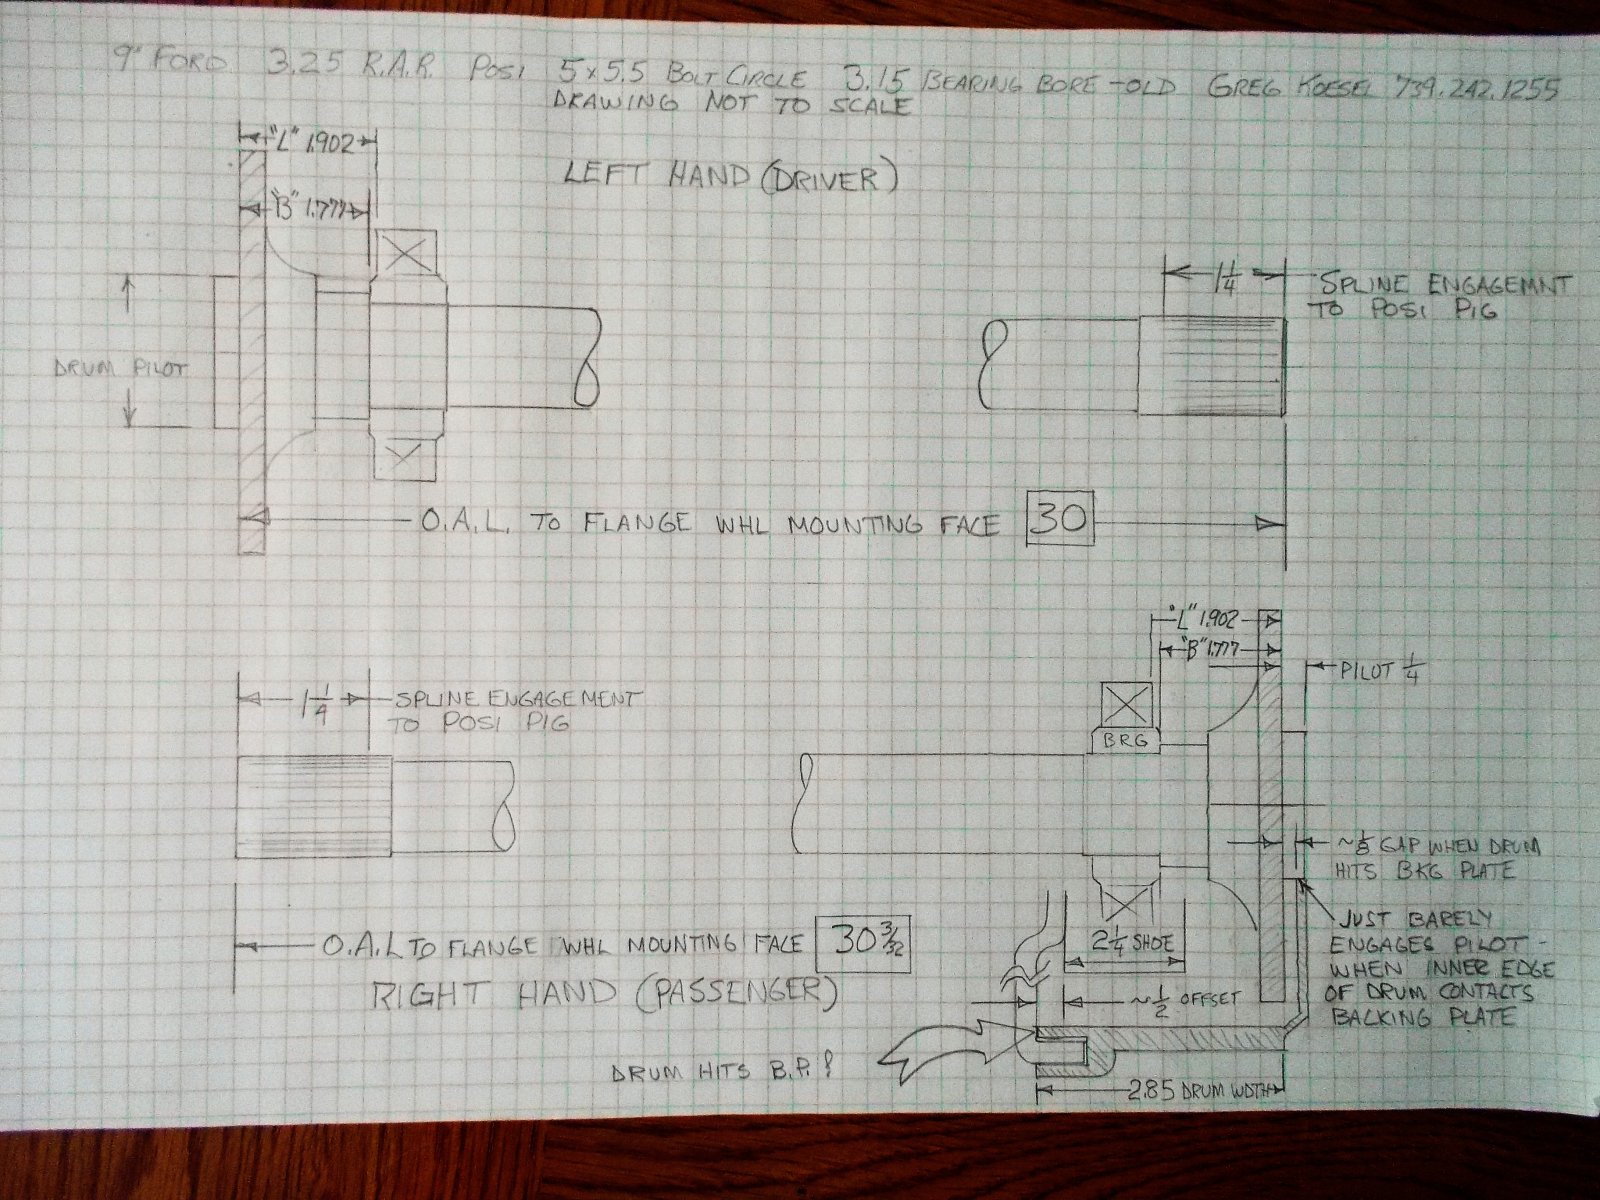 9" FORD 3.25 R.A.R. POSI 5x5.5 BOLT CIRCLE 3.15 BEARING BORE-OLD GREG KOESEL 739.242.1255
DRAWING NOT TO SCALE
"L" 1.902
LEFT HAND (DRIVER)
"B" 1.777
1 1/4
SPLINE ENGAGEMNT
TO POSI PIG
DRUM PILOT
O.A.L. TO FLANGE WHL MOUNTING FACE 30
"L" 1.902
"B" 1.777
PILOT 1/4
1 1/4
SPLINE ENGAGEMENT
TO POSI PIG
BRG
~1/8 GAP WHEN DRUM
HITS BKG PLATE
JUST BARELY
ENGAGES PILOT -
WHEN INNER EDGE
OF DRUM CONTACTS
BACKING PLATE
O.A.L TO FLANGE WHL MOUNTING FACE 30 3/32
2 1/4 SHOE
RIGHT HAND (PASSENGER)
~1/2 OFFSET
DRUM HITS B.P.!
2.85 DRUM WDTH